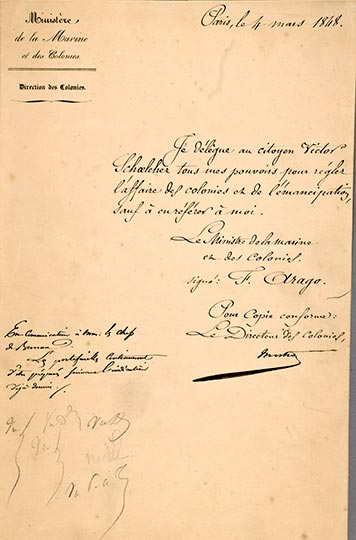 Ministère
de la Marine
et des Colonies.
Direction des Colonies.
Paris, le 4 mars 1848.
Je délègue au citoyen Victor
Schœlcher tous mes pouvoirs pour régler
l'affaire des colonies et de l'émancipation,
sauf à en référer à moi.
Le Ministre de la marine
et des Colonies.
signé: F. Arago.
Pour Copie conforme:
Le Directeur des Colonies,
En communication à MM. les chefs
de Bureau
Le portefeuille